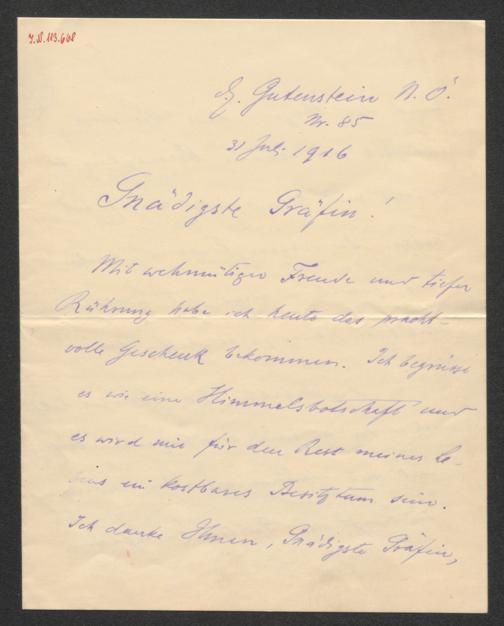 I.N. 113.668
Gutenstein N. Ö.
Nr. 85
31 Juli 1916
Gnädigste Gräfin!
Mit wehmütiger Freude und tiefer
Rührung habe ich heute das pracht-
volle Geschenk bekommen. Ich begrüsse
es wie eine Himmelsbotschaft und
es wird mir für den Rest meines Le-
bens ein kostbares Besitztum sein.
Ich danke Ihnen, Gnädigste Gräfin,